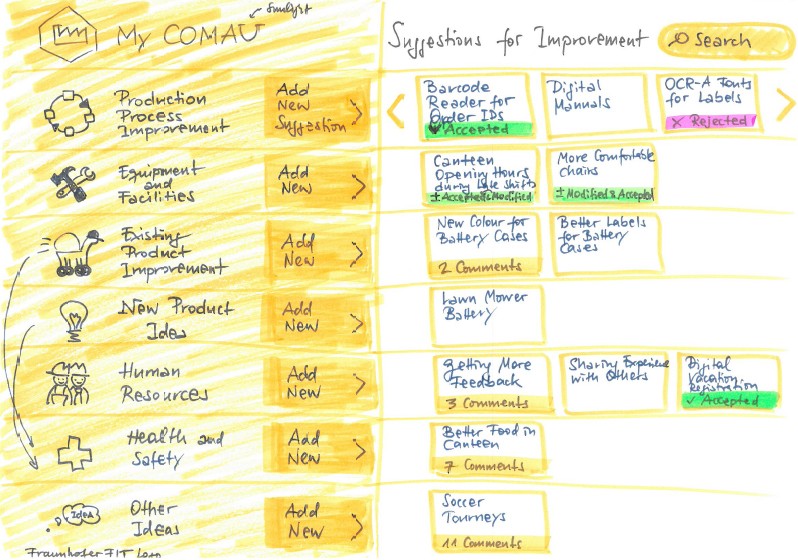 Analyst
My COMAU
Suggestions for Improvement
Search
Production
Process
Improvement
Add
New
Suggestion
Barcode
Reader for
Order IDs
Accepted
Digital
Manuals
OCR-A Fonts
for Labels
X Rejected
Equipment
and
Facilities
Add
New
Canteen
Opening Hours
during late shifts
± Accepted & Modified
More Comfortable
chairs
± Modified & Accepted
Existing
Product
Improvement
Add
New
New Colour for
Battery Cases
2 Comments
Better Labels
for Battery
Cases
New Product
Ideas
Add
New
Lawn Mower
Battery
Human
Resources
Add
New
Getting More
Feedback
3 Comments
Sharing Experience
with Others
Digital
Vacation
Registration
✓ Accepted
Health and
Safety
Add
New
Better Food in
Canteen
7 Comments
IDEA
Other
Ideas
Add
New
Soccer
Tourneys
11 Comments
Fraunhofer FIT